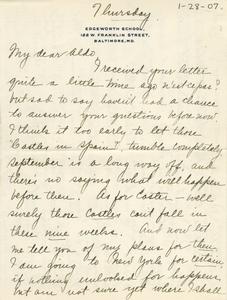 Thursday.
1-23-07.
EDGEWORTH SCHOOL,
122 W. FRANKLIN STREET,
BALTIMORE, MD.
My dear Aldo.
I received your letter
quite a little time ago n'est ce pas?
but sad to say haven't had a chance
to answer your questions before now.
I think it too early to let those
"Castles in Spain" tumble completely
September is a long way off, and
there's no saying what will happen
before then. As for Easter - well
surely those Castles can't fall in
these nine weeks. And now let
me tell you of my plans for then.
I am going to New York for certain
if nothing unlooked for happens,
but am not sure yet where I shall